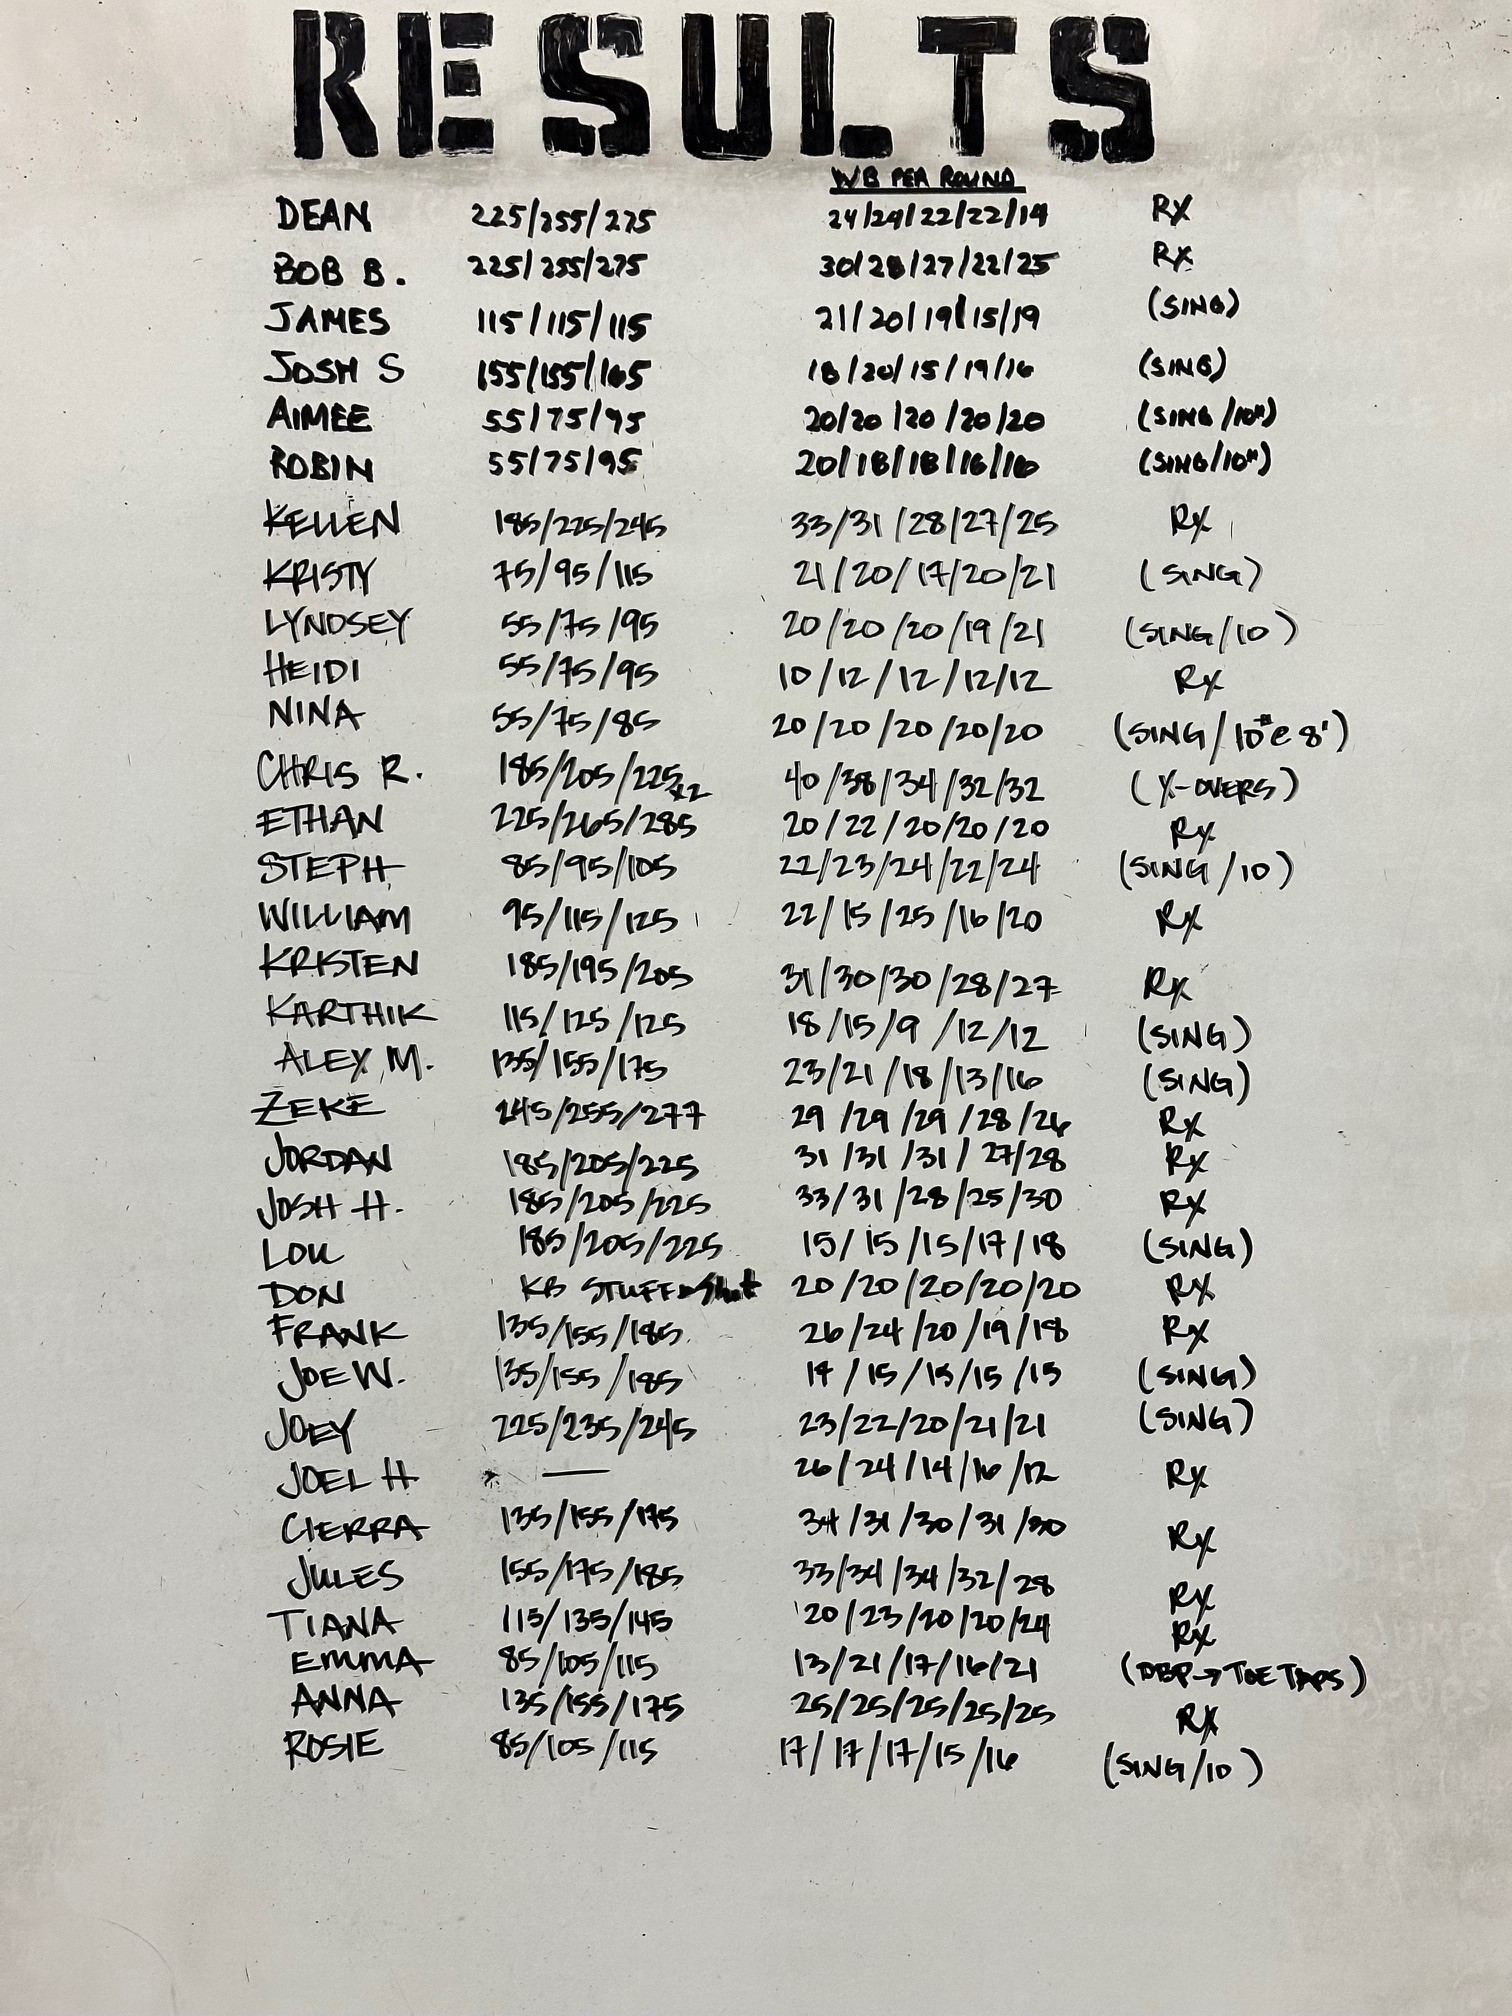 RESULTS
WB PER ROUND
DEAN 225/255/275 24/24/22/22/19 RX
BOB B. 225/255/275 30/28/27/22/25 RX
JAMES 115/115/115 21/20/19/15/19 (SING)
JOSH S 155/155/165 18/20/15/19/16 (SING)
AIMEE 55/75/95 20/20/20/20/20 (SING/10#)
ROBIN 55/75/95 20/18/18/16/16 (SING/10#)
KELLEN 185/225/245 33/31/28/27/25 RX
KRISTY 75/95/115 21/20/17/20/21 (SING)
LYNDSEY 55/75/95 20/20/20/19/21 (SING/10)
HEIDI 55/75/95 10/12/12/12/12 RX
NINA 55/75/85 20/20/20/20/20 (SING/10#@8')
CHRIS R. 185/205/225x2 40/38/34/32/32 (X-OVERS)
ETHAN 225/265/285 20/22/20/20/20 RX
STEPH 85/95/105 22/23/24/22/24 (SING/10)
WILLIAM 95/115/125 22/15/25/16/20 RX
KRISTEN 185/195/205 31/30/30/28/27 RX
KARTHIK 115/125/125 18/15/9/12/12 (SING)
ALEX M. 135/155/175 23/21/18/13/16 (SING)
ZEKE 245/255/277 29/29/29/28/26 RX
JORDAN 185/205/225 31/31/31/27/28 RX
JOSH H. 185/205/225 33/31/28/25/30 RX
LOU 185/205/225 15/15/15/17/18 (SING)
DON KB STUFF 20/20/20/20/20 RX
FRANK 135/155/185 26/24/20/19/18 RX
JOE W. 135/155/185 14/15/15/15/15 (SING)
JOEY 225/235/245 23/22/20/21/21 (SING)
JOEL H — 26/24/14/16/12 RX
CIERRA 135/155/175 34/31/30/31/30 RX
JULES 155/175/185 33/34/34/32/28 RX
TIANA 115/135/145 20/23/20/20/24 RX
EMMA 85/105/115 13/21/17/16/21 (DBP→TOE TAPS)
ANNA 135/155/175 25/25/25/25/25 RX
ROSIE 85/105/115 17/17/17/15/16 (SING/10)